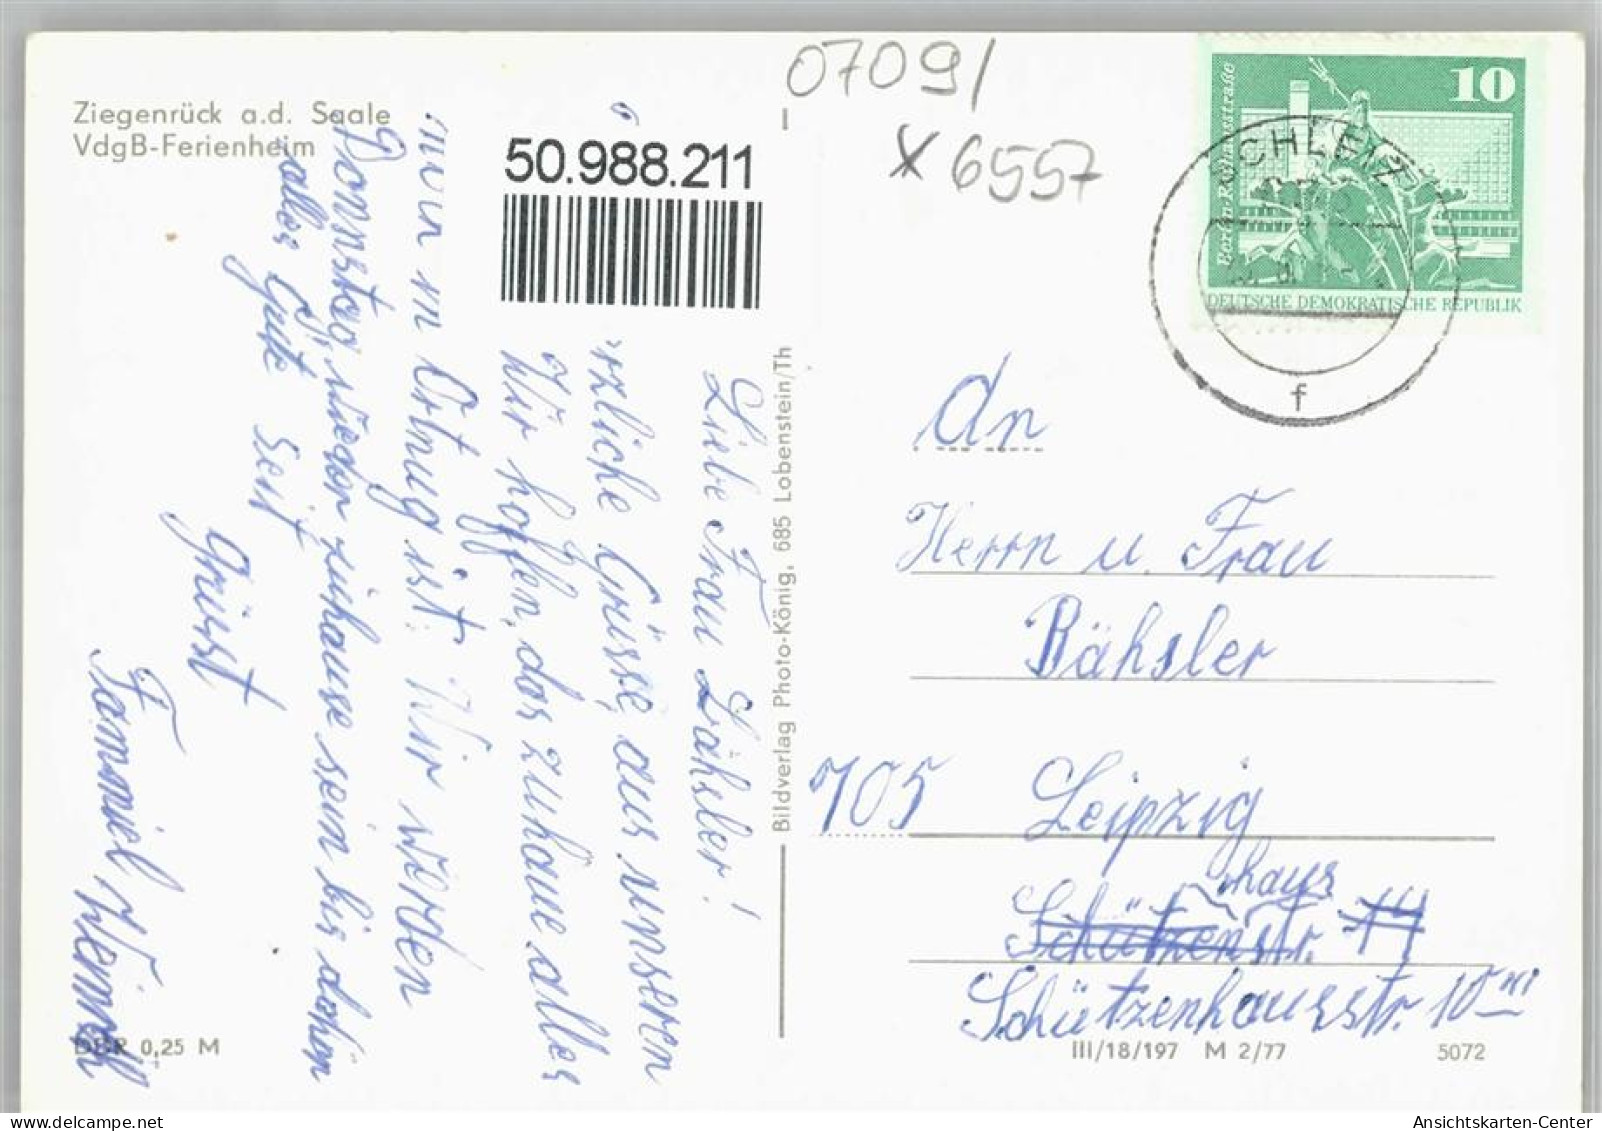 Ziegenrück a.d. Saale
VdgB-Ferienheim
50.988.211
07091
x 6557
10
Berlin-Rathausstraße
DEUTSCHE DEMOKRATISCHE REPUBLIK
SCHLEIZ
f
Liebe Frau Bähsler!
rzliche Grüsse, aus unseren
Wir hoffen, das zuhause alles
in Ortnug ist. Wir werden
Donnstag, wieder zuhause sein bis dahin
alles Gute seit
Grüsst
An
Herrn u. Frau
Bähsler
705 Leipzig
haus
Schützenstr. 14
Schützenhausstr. 10
Bildverlag Photo-König, 685 Lobenstein/Th
DDR 0,25 M
III/18/197 M 2/77
5072
Ansichtskarten-Center